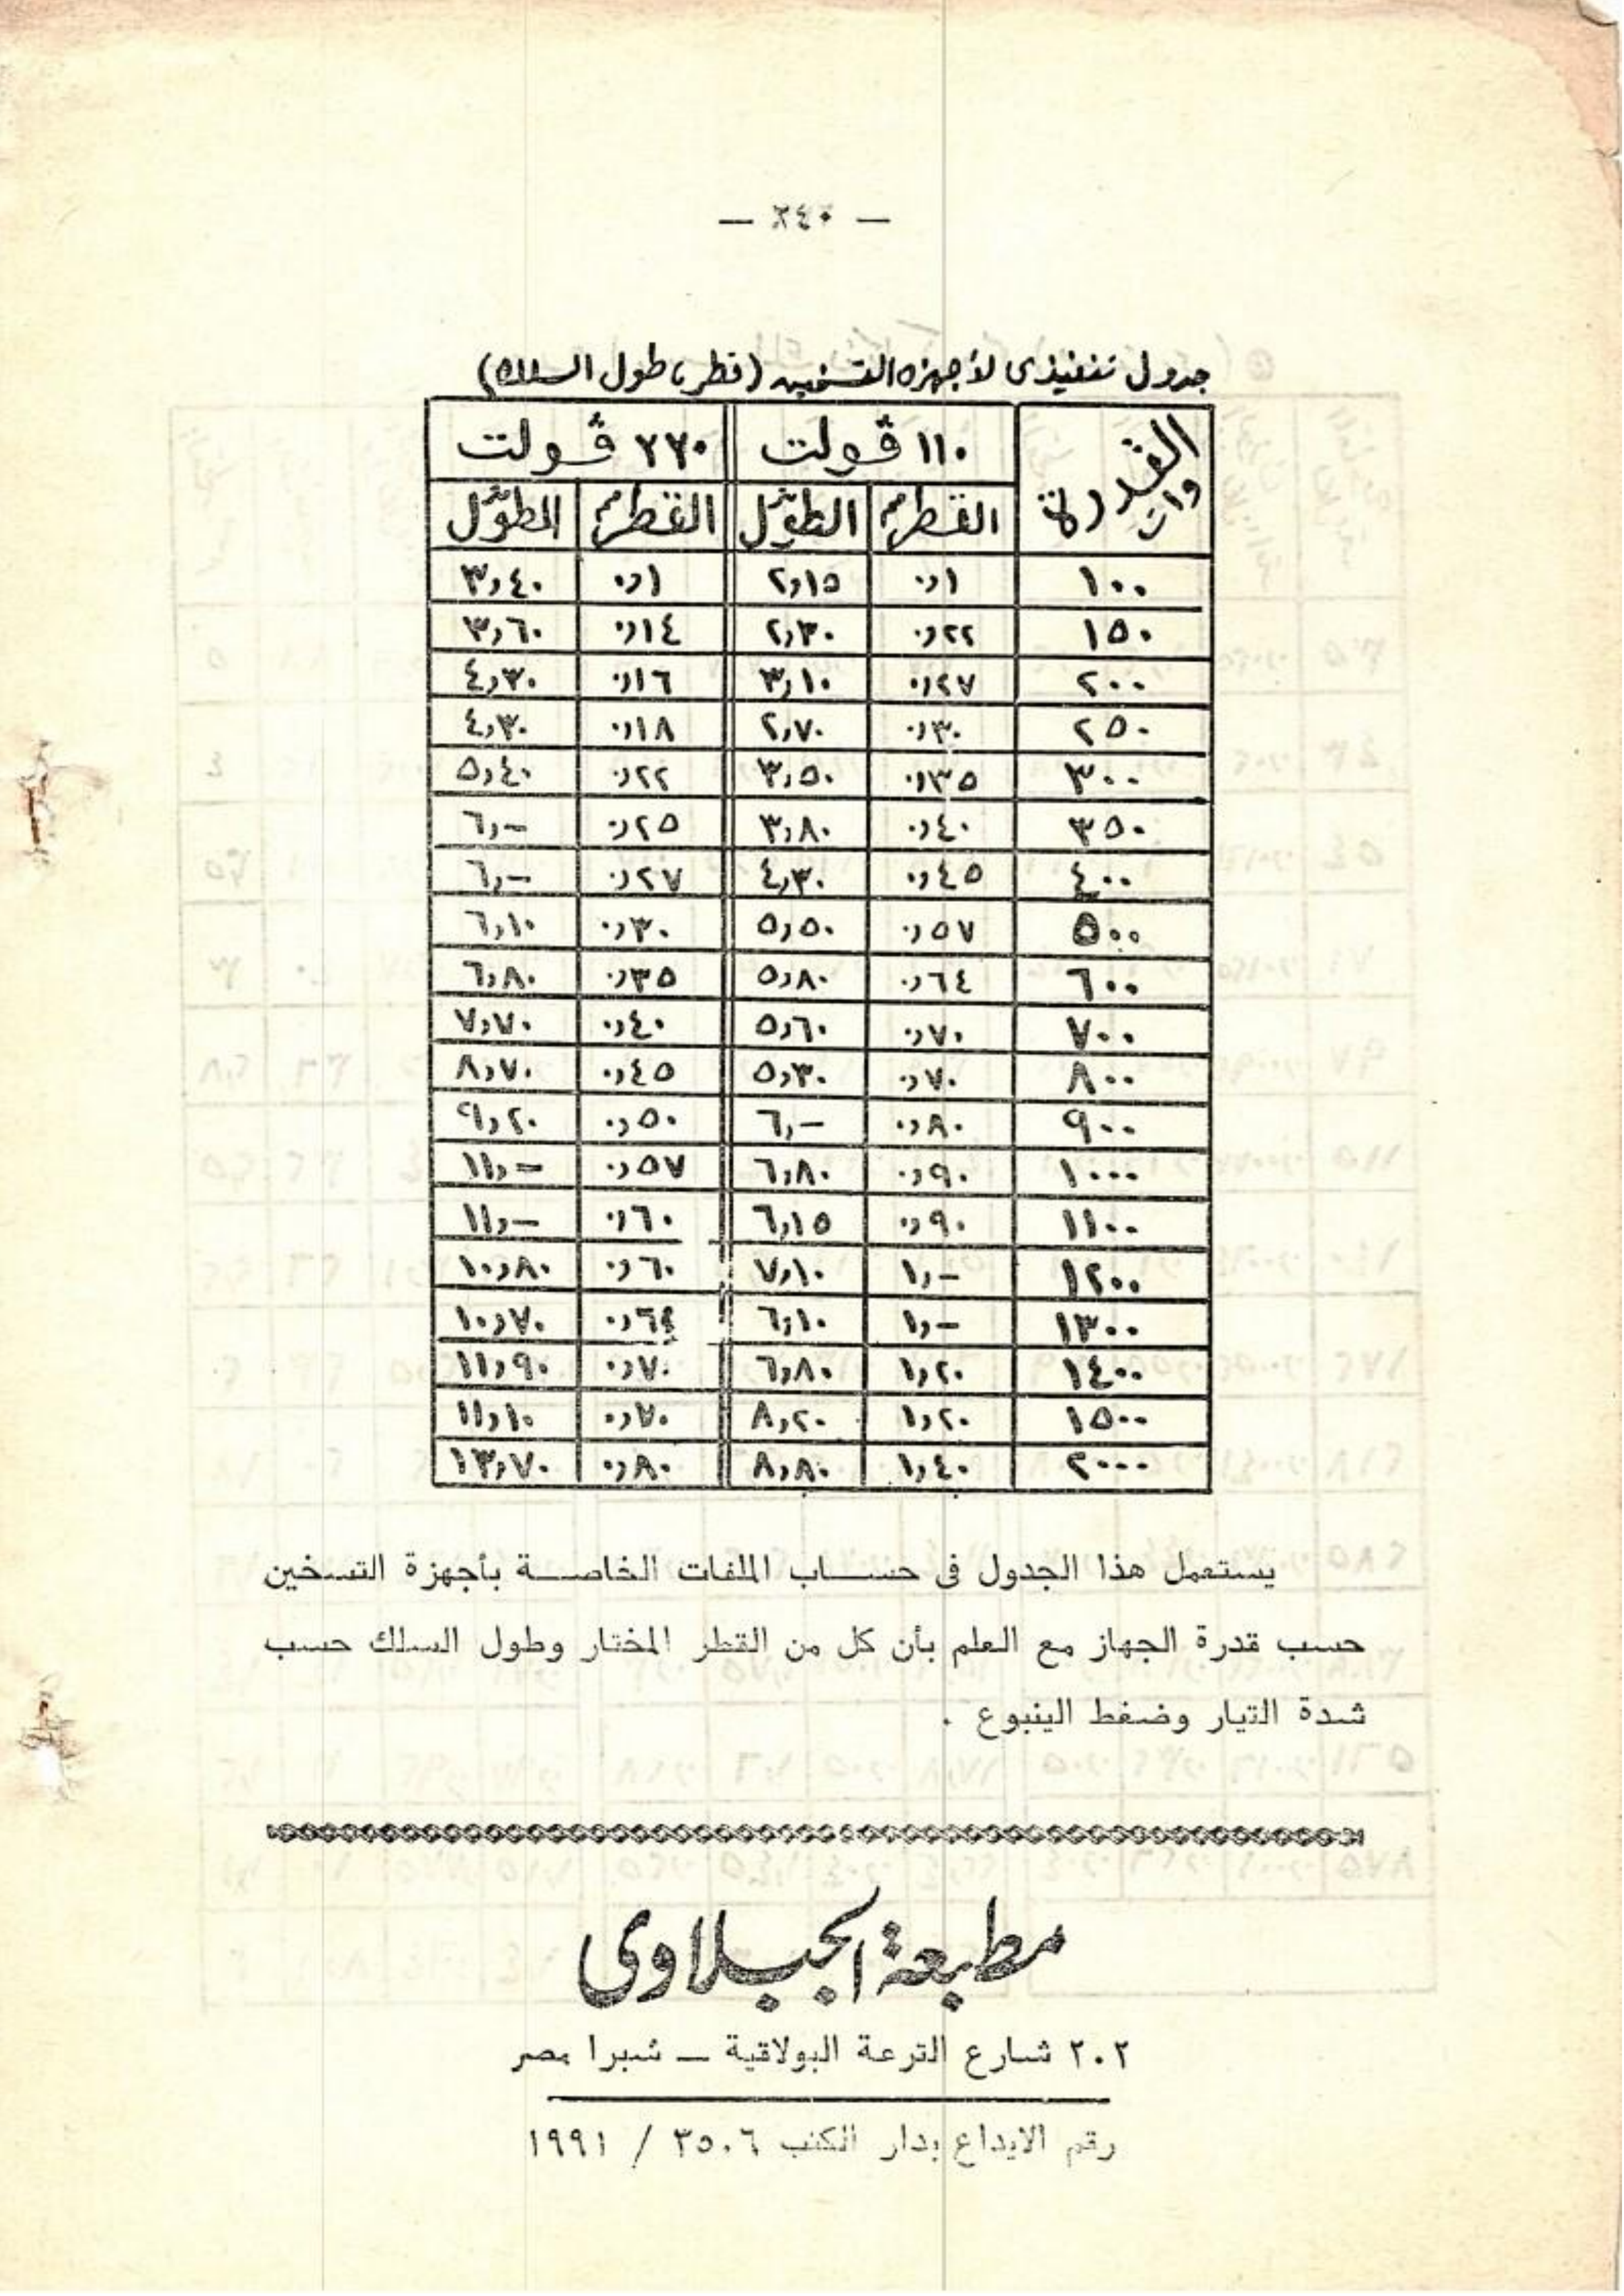 — ٢٤٠ —
جدول تنفيذى لأجهزه التسخين (قطر، طول السلك)
القدرة وات | ١١٠ ڤولت | ٢٢٠ ڤولت
القطر مم | الطول متر | القطر مم | الطول متر
١٠٠ | ٠٫١ | ٢٫١٥ | ٠٫١ | ٣٫٤٠
١٥٠ | ٠٫٢٢ | ٢٫٣٠ | ٠٫١٤ | ٣٫٦٠
٢٠٠ | ٠٫٢٧ | ٣٫١٠ | ٠٫١٦ | ٤٫٣٠
٢٥٠ | ٠٫٣٠ | ٢٫٧٠ | ٠٫١٨ | ٤٫٣٠
٣٠٠ | ٠٫٣٥ | ٣٫٥٠ | ٠٫٢٢ | ٥٫٤٠
٣٥٠ | ٠٫٤٠ | ٣٫٨٠ | ٠٫٢٥ | ٦٫–
٤٠٠ | ٠٫٤٥ | ٤٫٣٠ | ٠٫٢٧ | ٦٫–
٥٠٠ | ٠٫٥٧ | ٥٫٥٠ | ٠٫٣٠ | ٦٫١٠
٦٠٠ | ٠٫٦٤ | ٥٫٨٠ | ٠٫٣٥ | ٦٫٨٠
٧٠٠ | ٠٫٧٠ | ٥٫٦٠ | ٠٫٤٠ | ٧٫٧٠
٨٠٠ | ٠٫٧٠ | ٥٫٣٠ | ٠٫٤٥ | ٨٫٧٠
٩٠٠ | ٠٫٨٠ | ٦٫– | ٠٫٥٠ | ٩٫٢٠
١٠٠٠ | ٠٫٩٠ | ٦٫٨٠ | ٠٫٥٧ | ١١٫–
١١٠٠ | ٠٫٩٠ | ٦٫١٥ | ٠٫٦٠ | ١١٫–
١٢٠٠ | ١٫– | ٧٫١٠ | ٠٫٦٠ | ١٠٫٨٠
١٣٠٠ | ١٫– | ٦٫١٠ | ٠٫٦٤ | ١٠٫٧٠
١٤٠٠ | ١٫٢٠ | ٦٫٨٠ | ٠٫٧٠ | ١١٫٩٠
١٥٠٠ | ١٫٢٠ | ٨٫٢٠ | ٠٫٧٠ | ١١٫١٠
٢٠٠٠ | ١٫٤٠ | ٨٫٨٠ | ٠٫٨٠ | ١٣٫٧٠
يستعمل هذا الجدول فى حساب الملفات الخاصة بأجهزة التسخين
حسب قدرة الجهاز مع العلم بأن كل من القطر المختار وطول السلك حسب
شدة التيار وضغط الينبوع .
مطبعة الجبلاوى
٢٠٢ شارع الترعة البولاقية – شبرا مصر
رقم الايداع بدار الكتب ٣٥٠٦ / ١٩٩١